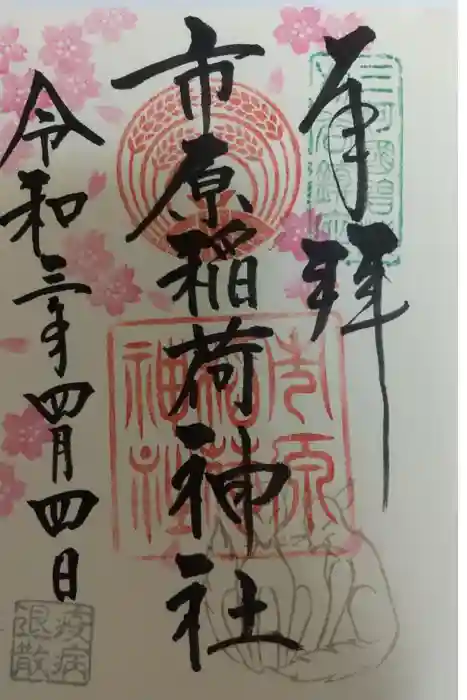 奉拝
市原稲荷神社
令和三年四月四日
市原
稲荷
神社
疫病
退散